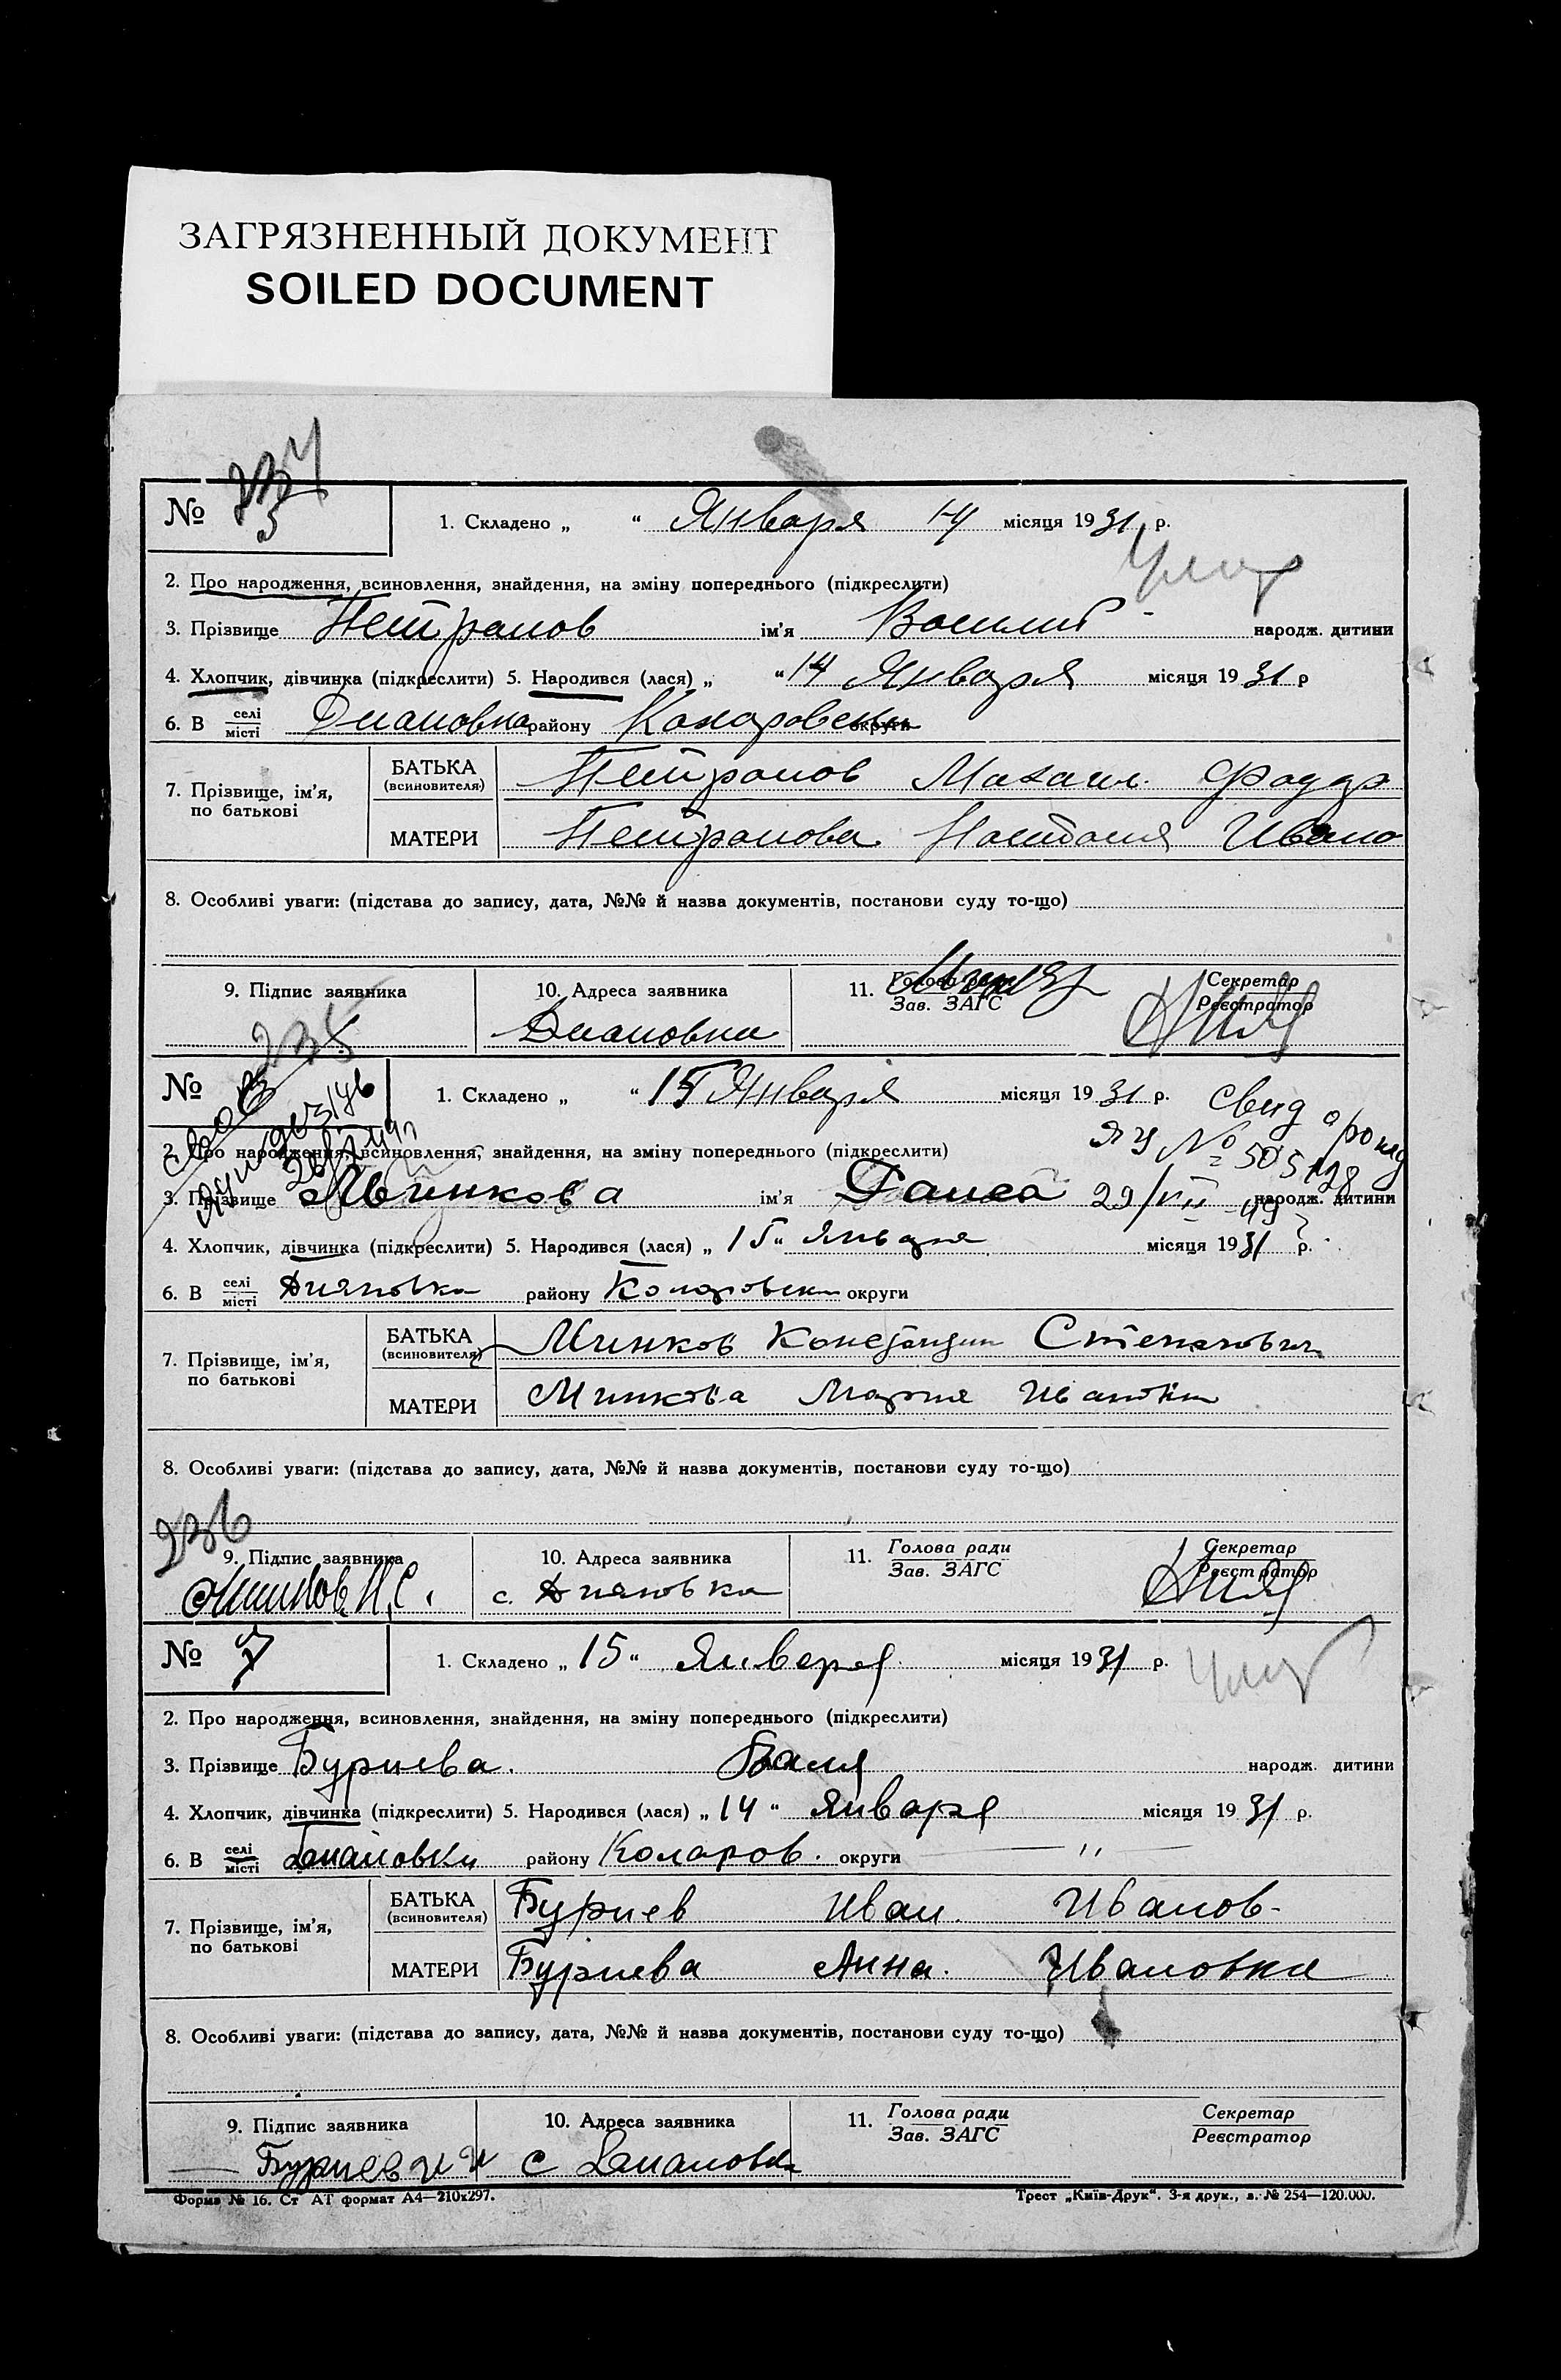 ЗАГРЯЗНЕННЫЙ ДОКУМЕНТ
SOILED DOCUMENT
234
№ 5 1. Складено „ “ Января 14 місяця 1931 р.
2. Про народження, всиновлення, знайдення, на зміну попереднього (підкреслити)
3. Прізвище Петранов ім'я Василий народж. дитини
4. Хлопчик, дівчинка (підкреслити) 5. Народився (лася) „ “ 14 Января місяця 1931 р
6. В селі місті Диановка району Коларовски округи
7. Прізвище, ім'я, по батькові
БАТЬКА (всиновителя) Петранов
МАТЕРИ Петранова Ивано
8. Особливі уваги: (підстава до запису, дата, №№ й назва документів, постанови суду то-що)
9. Підпис заявника 10. Адреса заявника 11. Голова ради Зав. ЗАГС Секретар Реєстратор
Диановки
235
№ 1. Складено „ “ 15 Января місяця 1931 р.
Свид о рожд
ЯУ № 505128
2. Про народження, всиновлення, знайдення, на зміну попереднього (підкреслити)
3. Прізвище Минкова ім'я Раиса 29/VII-49 народж. дитини
4. Хлопчик, дівчинка (підкреслити) 5. Народився (лася) „ 15 “ Января місяця 1931 р.
6. В селі місті Дияновка району Коларовски округи
7. Прізвище, ім'я, по батькові
БАТЬКА (всиновителя) Минков Констандин Степанович
МАТЕРИ Минкова Мария Ивановн
8. Особливі уваги: (підстава до запису, дата, №№ й назва документів, постанови суду то-що)
236
9. Підпис заявника 10. Адреса заявника 11. Голова ради Зав. ЗАГС Секретар Реєстратор
с. Дияновка
№ 7 1. Складено „ 15 “ Января місяця 1931 р.
2. Про народження, всиновлення, знайдення, на зміну попереднього (підкреслити)
3. Прізвище Буриева. Валя народж. дитини
4. Хлопчик, дівчинка (підкреслити) 5. Народився (лася) „ 14 “ Января місяця 1931 р.
6. В селі місті Диановки району Коларов. округи — „ —
7. Прізвище, ім'я, по батькові
БАТЬКА (всиновителя) Буриев Иван. Иванов-
МАТЕРИ Буриева Анна. Ивановна
8. Особливі уваги: (підстава до запису, дата, №№ й назва документів, постанови суду то-що)
9. Підпис заявника 10. Адреса заявника 11. Голова ради Зав. ЗАГС Секретар Реєстратор
Буриев И И с Диановка
Форма № 16. Ст АТ формат А4—210х297. Трест „Київ-Друк“. 3-я друк., з. № 254—120.000.